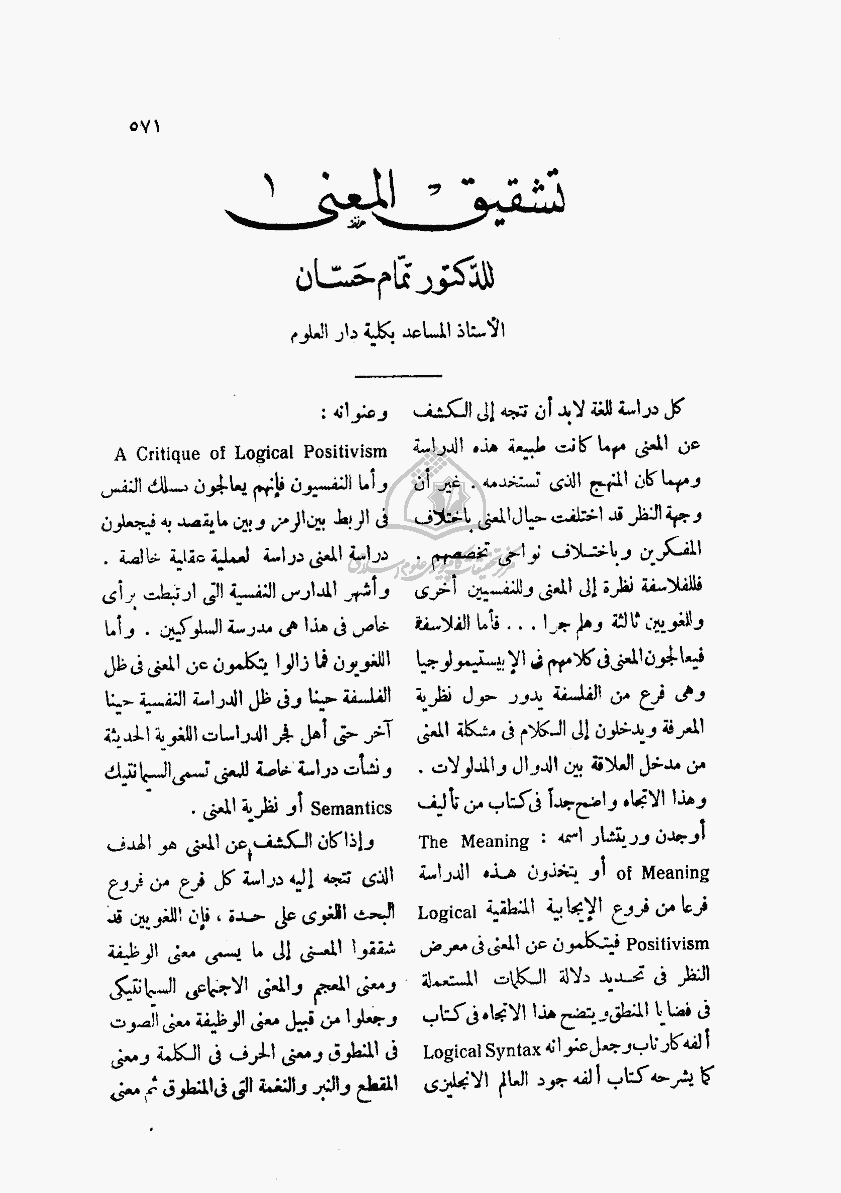 ٥٧١
تشقيق المعنى ١
للدكتور تمّام حَسّان
الأستاذ المساعد بكلية دار العلوم
كل دراسة للغة لابد أن تتجه إلى الكشف
عن المعنى مهما كانت طبيعة هذه الدراسة
ومهما كان المنهج الذى تستخدمه . غير أن
وجهة النظر قد اختلفت حيال المعنى باختلاف
المفكرين وباختلاف نواحى تخصصهم .
فللفلاسفة نظرة إلى المعنى وللنفسيين أخرى
وللغويين ثالثة وهلم جرا ... فأما الفلاسفة
فيعالجون المعنى فى كلامهم فى الإبيستيمولوجيا
وهى فرع من الفلسفة يدور حول نظرية
المعرفة ويدخلون إلى الكلام فى مشكلة المعنى
من مدخل العلاقة بين الدوال والمدلولات .
وهذا الاتجاه واضح جداً فى كتاب من تأليف
أوجدن وريتشار اسمه : The Meaning
of Meaning أو يتخذون هذه الدراسة
فرعا من فروع الإيجابية المنطقية Logical
Positivism فيتكلمون عن المعنى فى معرض
النظر فى تحديد دلالة الكلمات المستعملة
فى قضايا المنطق ويتضح هذا الاتجاه فى كتاب
ألفه كارناب وجعل عنوانه Logical Syntax
كما يشرحه كتاب ألفه جود العالم الانجليزى
وعنوانه :
A Critique of Logical Positivism
وأما النفسيون فإنهم يعالجون مسلك النفس
فى الربط بين الرمز وبين مايقصد به فيجعلون
دراسة المعنى دراسة لعملية عقلية خالصة .
وأشهر المدارس النفسية التى ارتبطت برأى
خاص فى هذا هى مدرسة السلوكيين . وأما
اللغويون فما زالوا يتكلمون عن المعنى فى ظل
الفلسفة حينا وفى ظل الدراسة النفسية حينا
آخر حتى أهل فجر الدراسات اللغوية الحديثة
ونشأت دراسة خاصة للمعنى تسمى السيمانتيك
Semantics أو نظرية المعنى .
وإذا كان الكشف عن المعنى هو الهدف
الذى تتجه إليه دراسة كل فرع من فروع
البحث اللغوى على حدة ، فإن اللغويين قد
شققوا المعنى إلى ما يسمى معنى الوظيفة
ومعنى المعجم والمعنى الاجتماعى السيمانتيكى
وجعلوا من قبيل معنى الوظيفة معنى الصوت
فى المنطوق ومعنى الحرف فى الكلمة ومعنى
المقطع والنبر والنغمة التى فى المنطوق ثم معنى